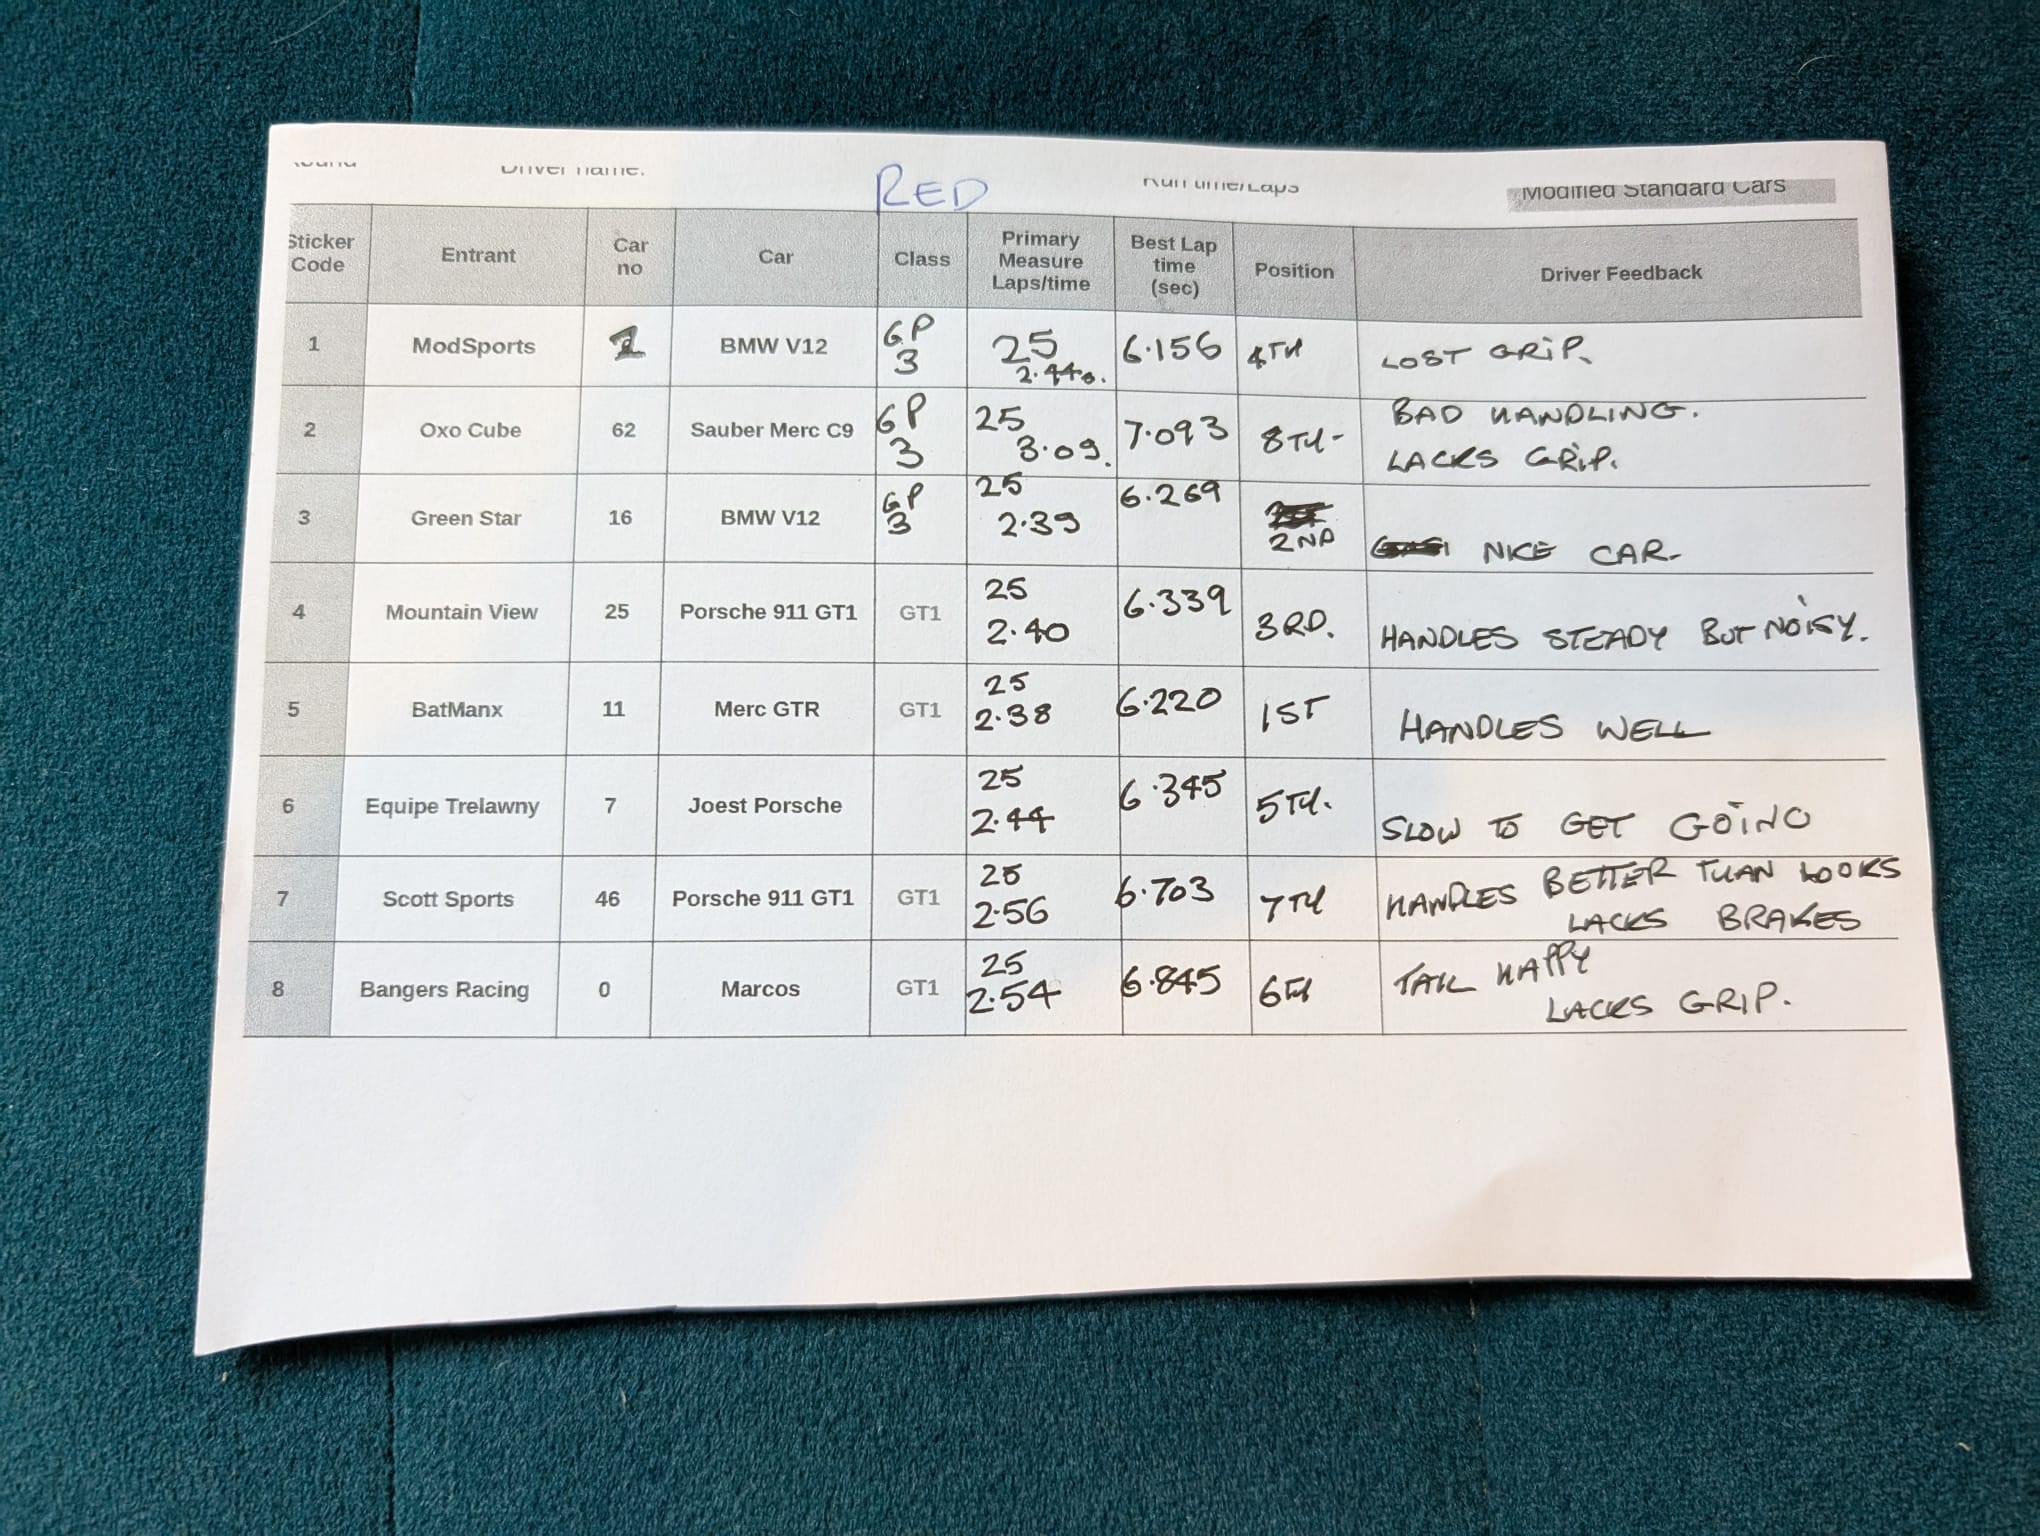 Round Driver name: RED Run time/Laps Modified Standard Cars
Sticker Code Entrant Car no Car Class Primary Measure Laps/time Best Lap time (sec) Position Driver Feedback
1 ModSports BMW V12 GP 3 25 2.44 6.156 4TH LOST GRIP.
2 Oxo Cube 62 Sauber Merc C9 GP 3 25 3.09. 7.093 8TH- BAD HANDLING. LACKS GRIP.
3 Green Star 16 BMW V12 GP 3 25 2.39 6.269 2ND NICE CAR-
4 Mountain View 25 Porsche 911 GT1 GT1 25 2.40 6.339 3RD. HANDLES STEADY BUT NOISY.
5 BatManx 11 Merc GTR GT1 25 2.38 6.220 1ST HANDLES WELL
6 Equipe Trelawny 7 Joest Porsche 25 2.44 6.345 5TH. SLOW TO GET GOING
7 Scott Sports 46 Porsche 911 GT1 GT1 25 2.56 6.703 7TH HANDLES BETTER THAN LOOKS LACKS BRAKES
8 Bangers Racing 0 Marcos GT1 25 2.54 6.845 6TH TAIL HAPPY LACKS GRIP.